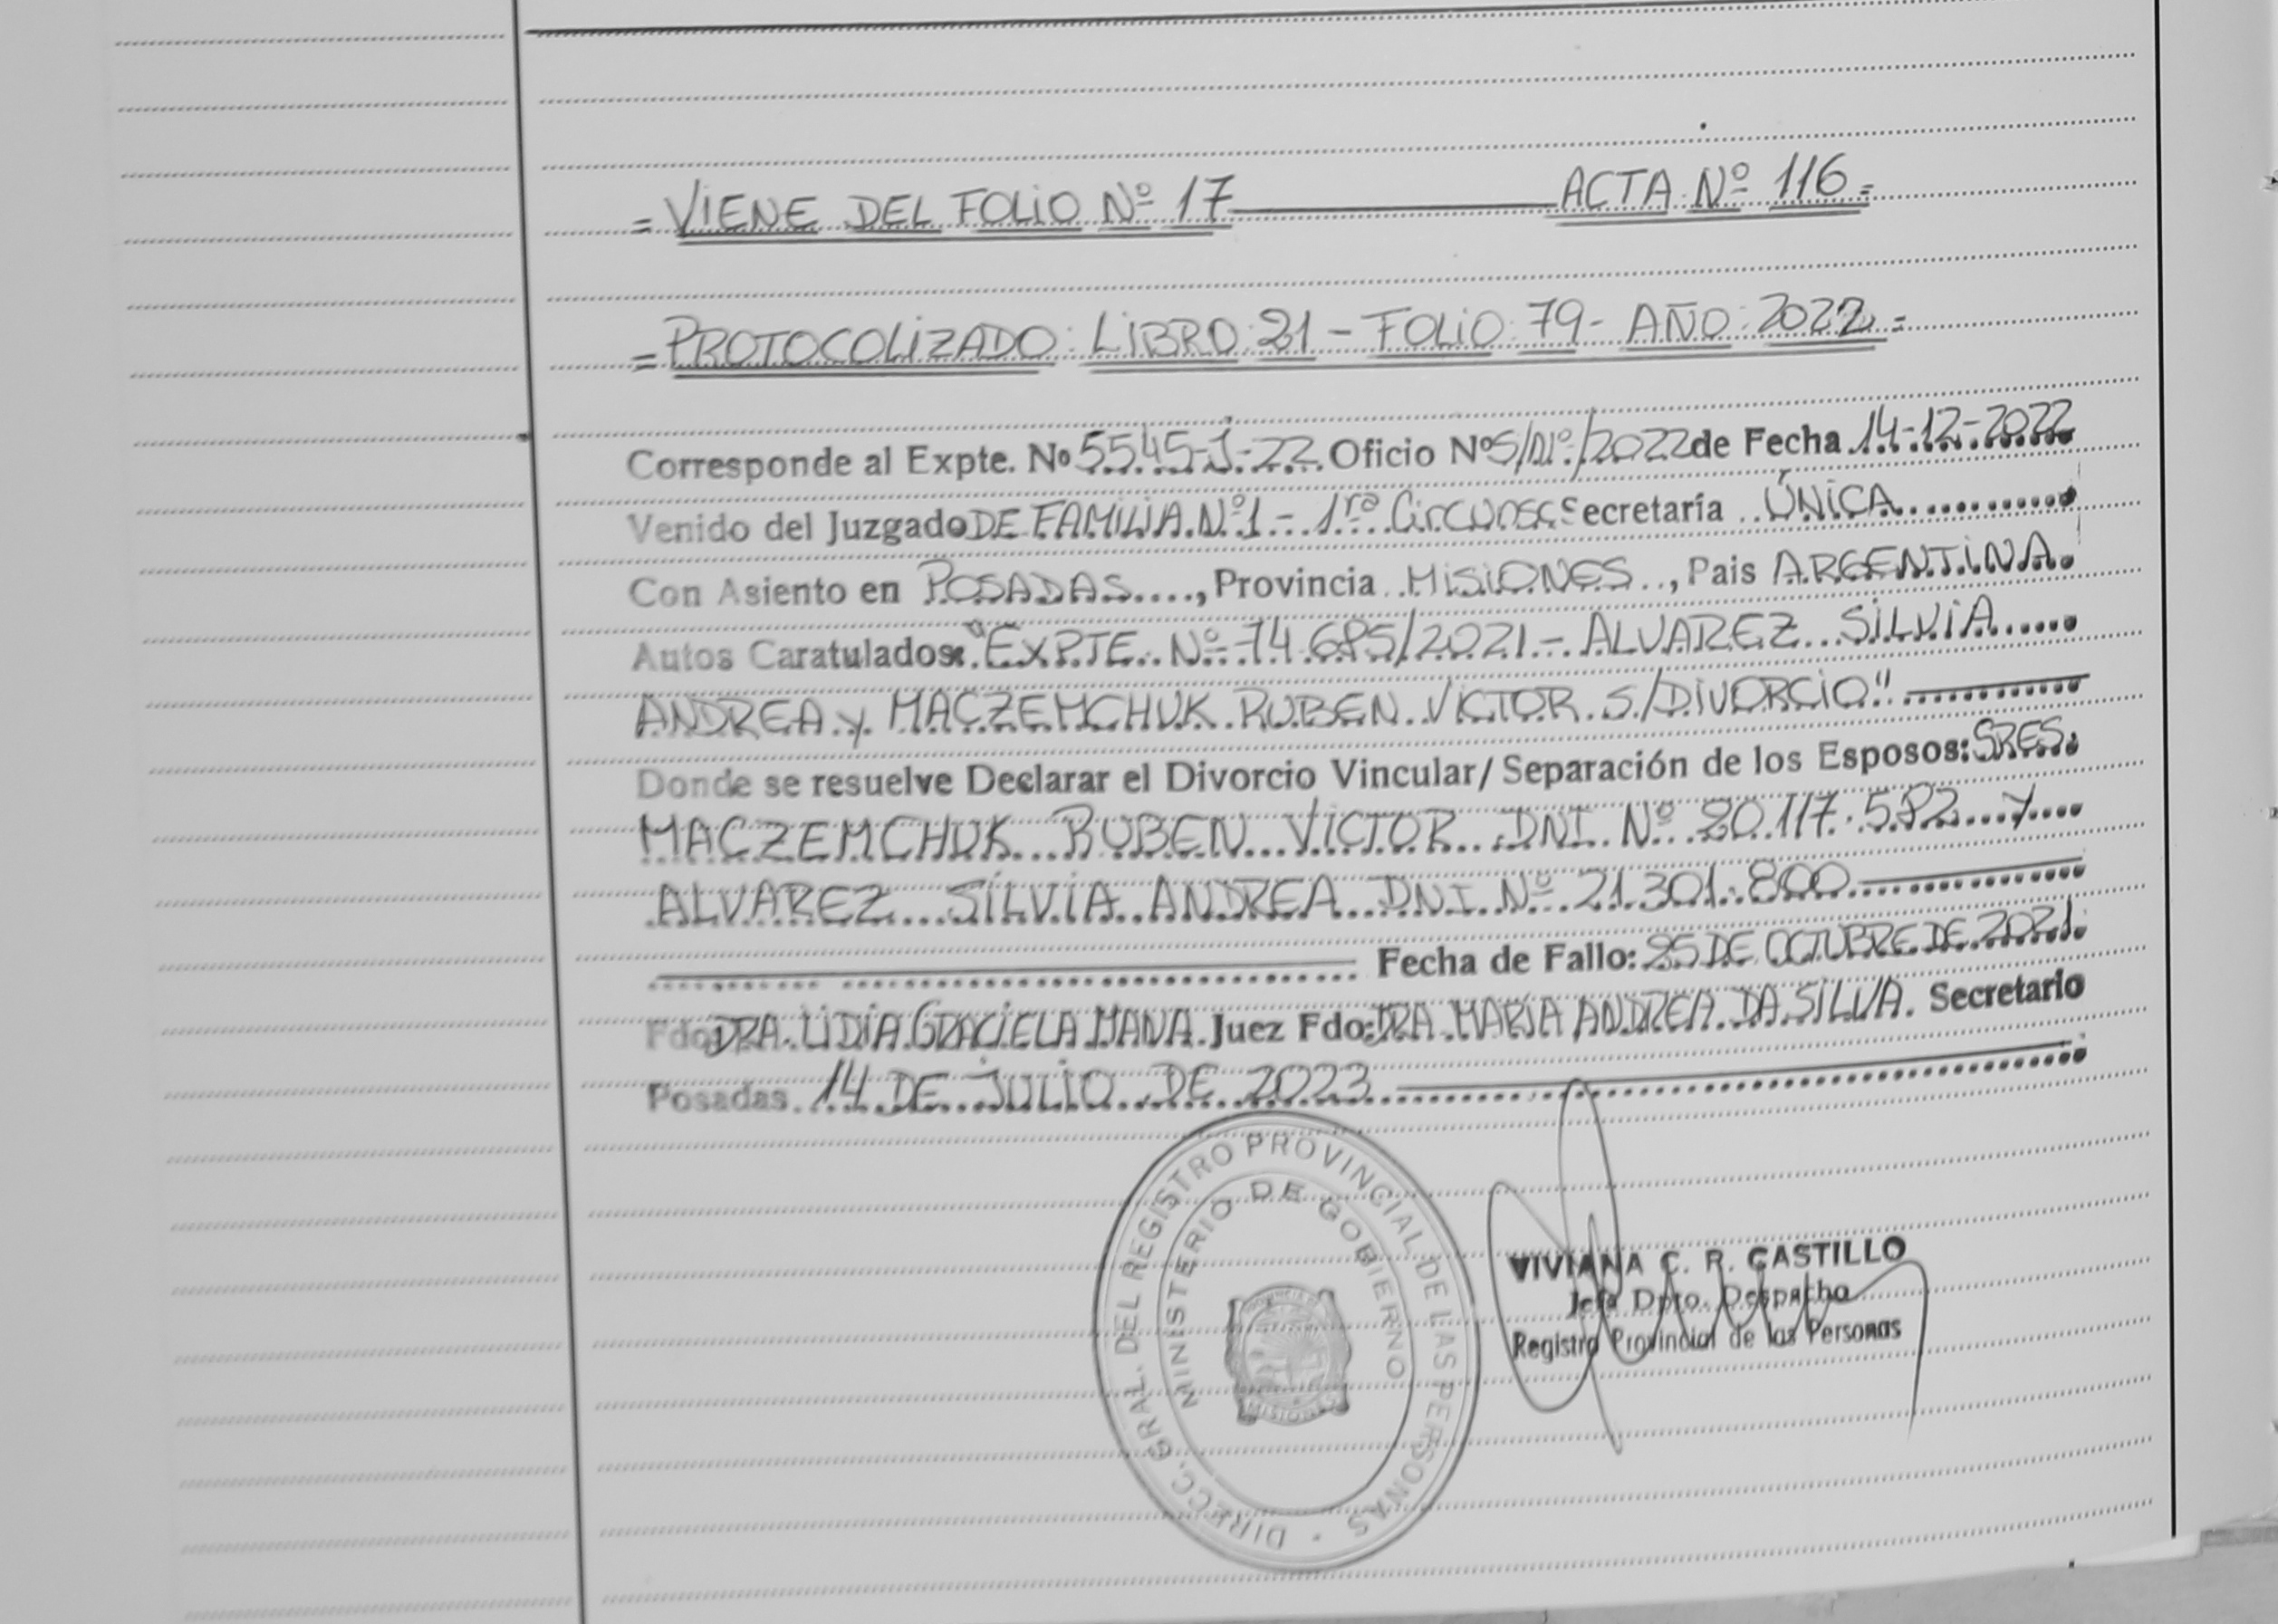 = VIENE DEL FOLIO Nº 17 ACTA Nº 116 =
= PROTOCOLIZADO: LIBRO: 21 - FOLIO: 79 - AÑO: 2022 =
Corresponde al Expte. Nº 5545-J-22 Oficio Nº S/Nº/2022 de Fecha 14-12-2022
Venido del Juzgado DE FAMILIA Nº 1 - 1ra Circunsc. Secretaría ÚNICA
Con Asiento en POSADAS...., Provincia MISIONES.., Pais ARGENTINA.
Autos Caratulados: "EXPTE. Nº 74.685/2021 - ALVAREZ SILVIA
ANDREA y MACZEMCHUK RUBEN VICTOR S/DIVORCIO"
Donde se resuelve Declarar el Divorcio Vincular/Separación de los Esposos: SRES.
MACZEMCHUK RUBEN VICTOR DNI Nº 20.117.582 y
ALVAREZ SILVIA ANDREA DNI Nº 21.301.800
Fecha de Fallo: 25 DE OCTUBRE DE 2021.
Fdo: DRA. LIDIA GRACIELA MANA. Juez Fdo: DRA. MARIA ANDREA DA SILVA. Secretario
Posadas 14 DE JULIO DE 2023
DIRECC. GRAL. DEL REGISTRO PROVINCIAL DE LAS PERSONAS
MINISTERIO DE GOBIERNO
MISIONES
VIVIANA C. R. CASTILLO
Jefa Dpto. Despacho
Registro Provincial de las Personas